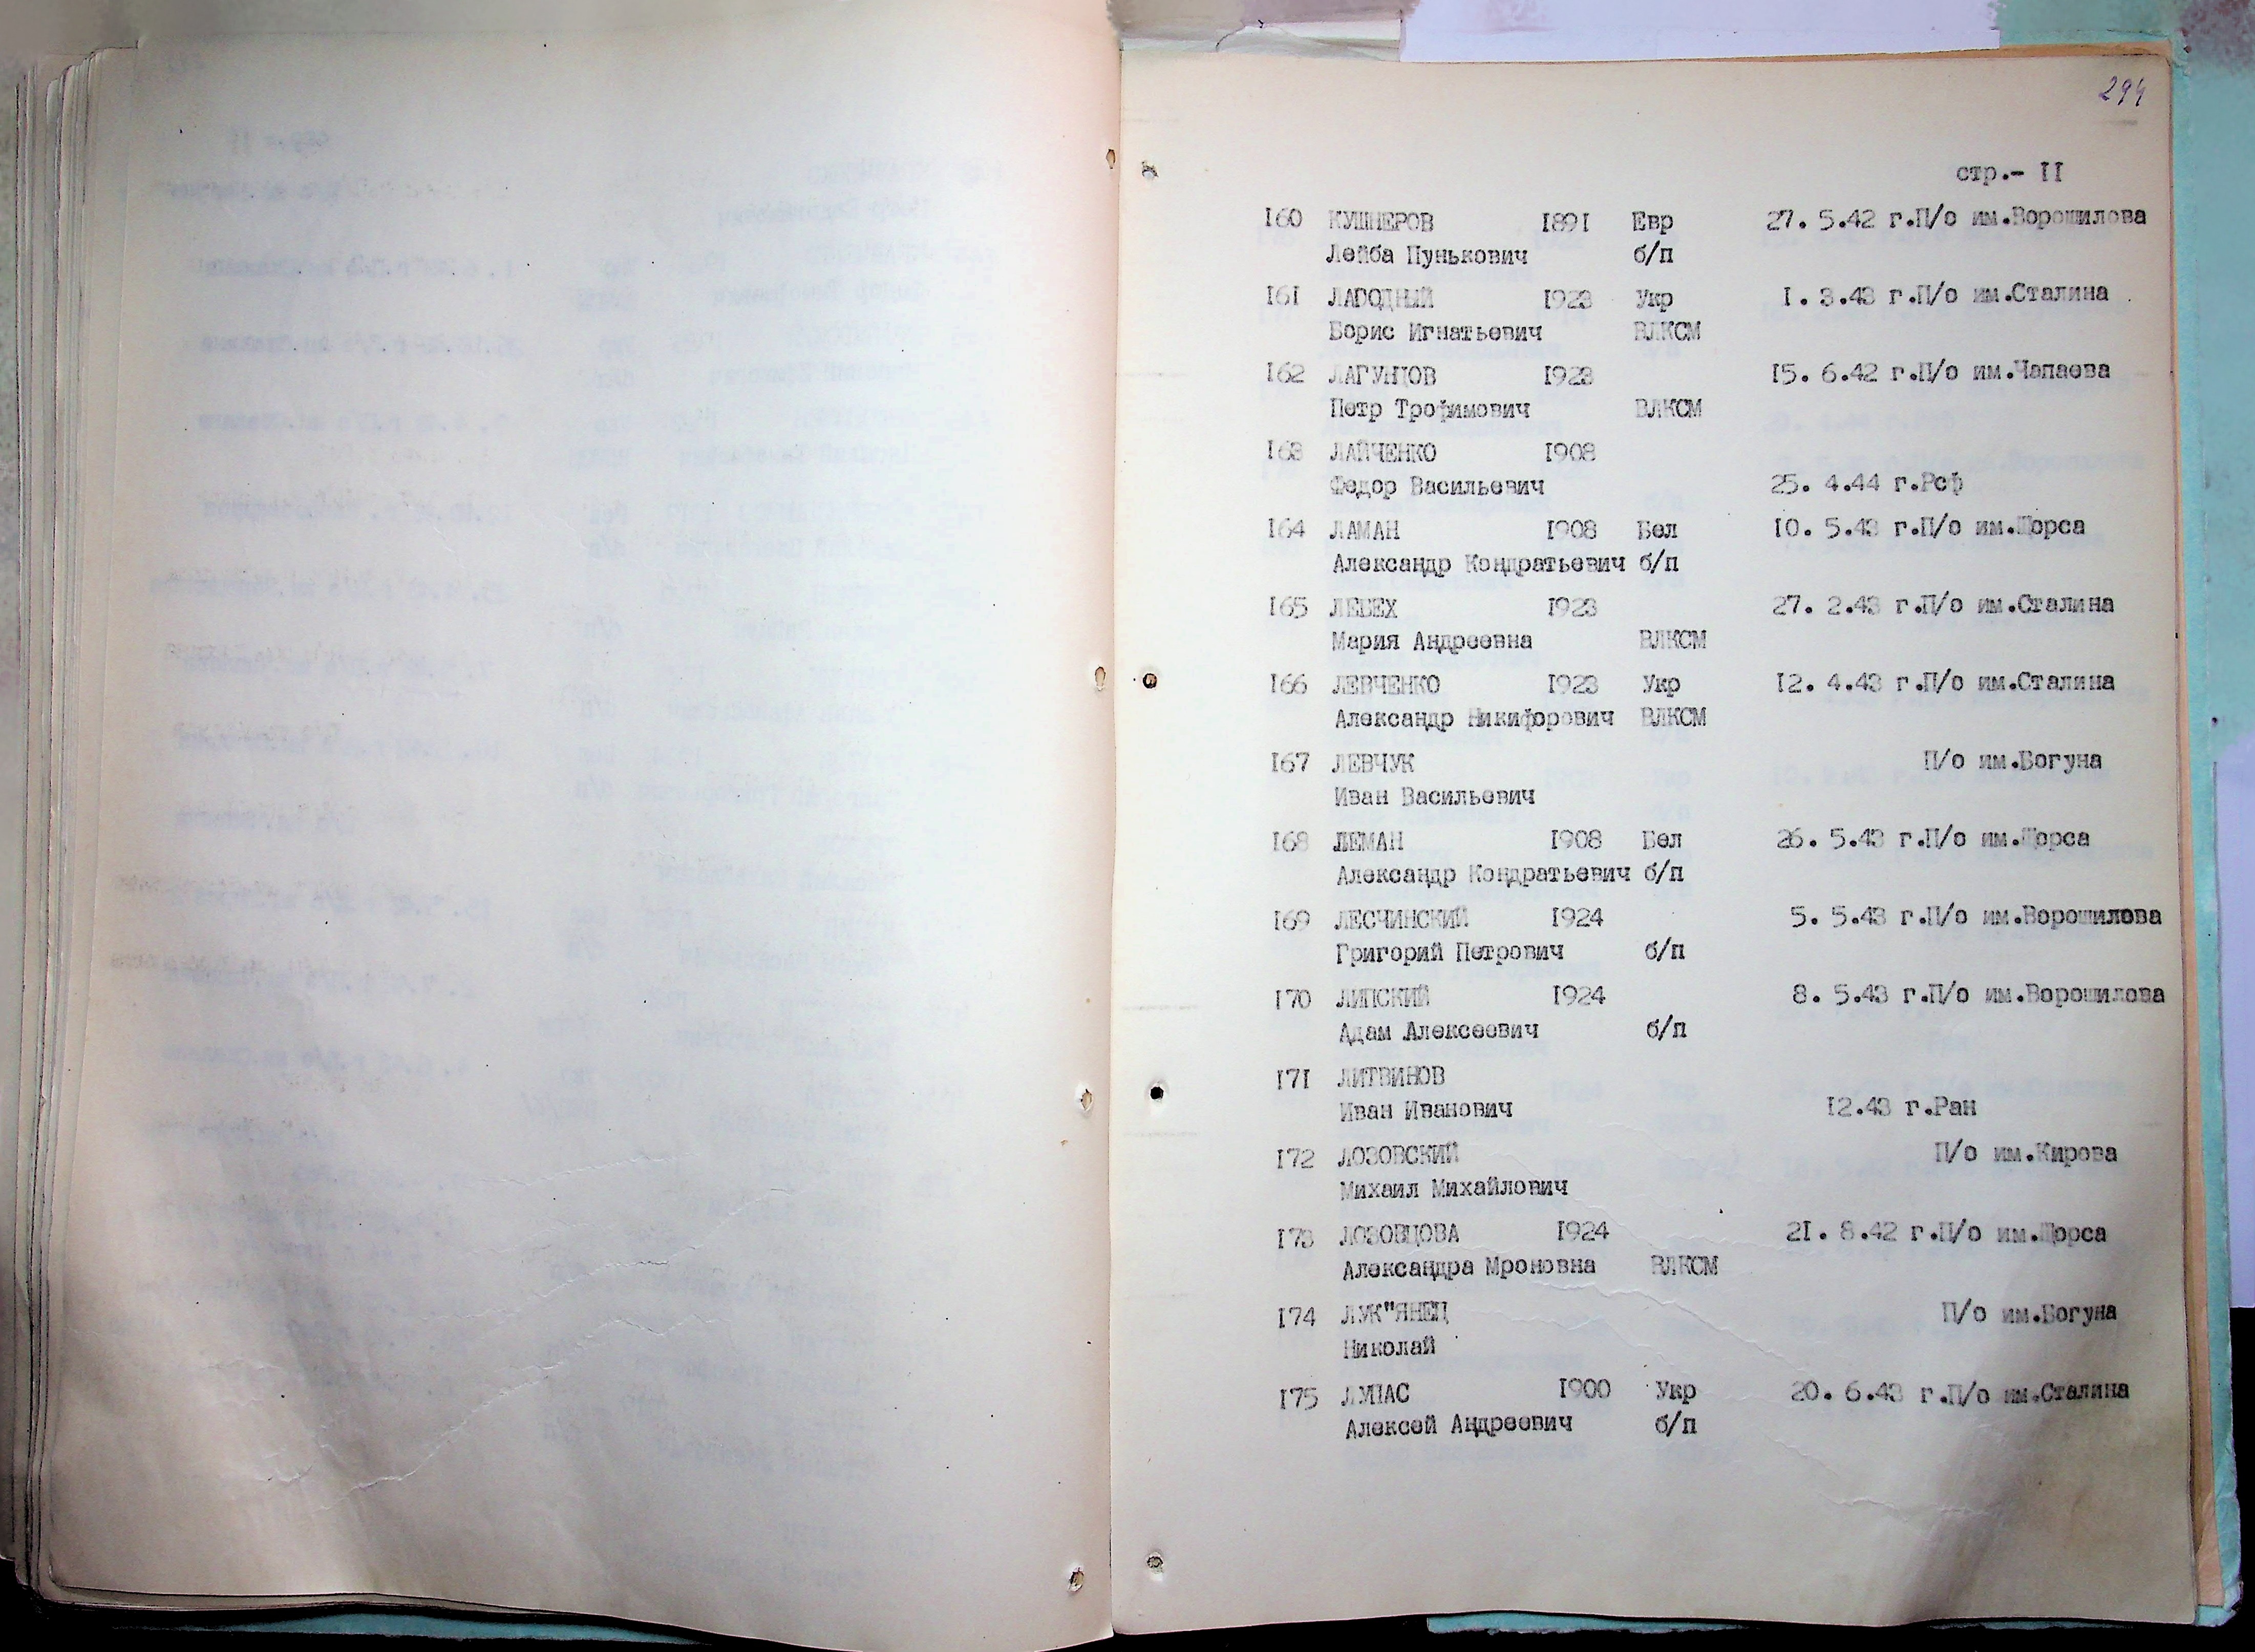 294
стр.- II
I60 КУШНЕРОВ I89I Евр 27. 5.42 г.П/о им.Ворошилова
Лейба Пунькович б/п
I6I ЛАГОДНЫЙ I923 Укр I. 3.43 г.П/о им.Сталина
Борис Игнатьевич ВЛКСМ
I62 ЛАГУНЦОВ I923 I5. 6.42 г.П/о им.Чапаева
Петр Трофимович ВЛКСМ
I63 ЛАЙЧЕНКО I908
Федор Васильевич 25. 4.44 г.Рсф
I64 ЛАМАН I908 Бел I0. 5.43 г.П/о им.Щорса
Александр Кондратьевич б/п
I65 ЛЕБЕХ I923 27. 2.43 г.П/о им.Сталина
Мария Андреевна ВЛКСМ
I66 ЛЕВЧЕНКО I923 Укр I2. 4.43 г.П/о им.Сталина
Александр Никифорович ВЛКСМ
I67 ЛЕВЧУК П/о им.Богуна
Иван Васильевич
I68 ЛЕМАН I908 Бел 26. 5.43 г.П/о им.Щорса
Александр Кондратьевич б/п
I69 ЛЕСЧИНСКИЙ I924 5. 5.43 г.П/о им.Ворошилова
Григорий Петрович б/п
I70 ЛИПСКИЙ I924 8. 5.43 г.П/о им.Ворошилова
Адам Алексеевич б/п
I7I ЛИТВИНОВ
Иван Иванович I2.43 г.Ран
I72 ЛОЗОВСКИЙ П/о им.Кирова
Михаил Михайлович
I73 ЛОЗОВЦОВА I924 2I. 8.42 г.П/о им.Щорса
Александра Мроновна ВЛКСМ
I74 ЛУК"ЯНЕЦ П/о им.Богуна
Николай
I75 ЛУПАС I900 Укр 20. 6.43 г.П/о им.Сталина
Алексей Андреевич б/п